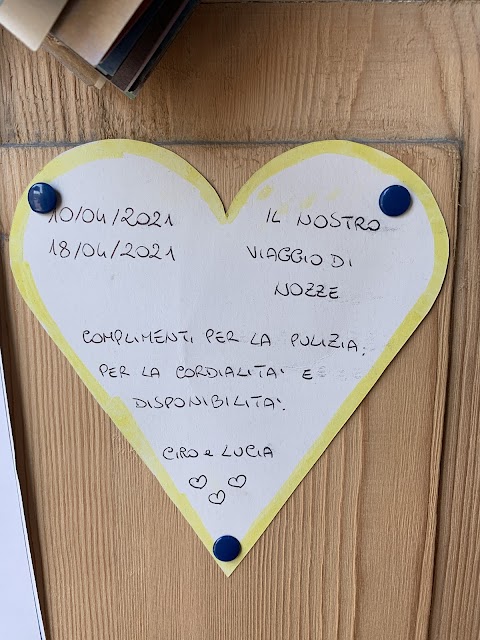 10/04/2021
18/04/2021
IL NOSTRO
VIAGGIO DI
NOZZE
COMPLIMENTI PER LA PULIZIA,
PER LA CORDIALITA' E
DISPONIBILITA'.
CIRO e LUCIA